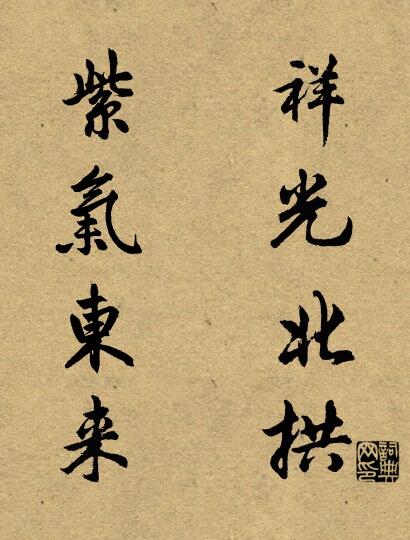 祥光北拱
紫氣東来
詞典網印